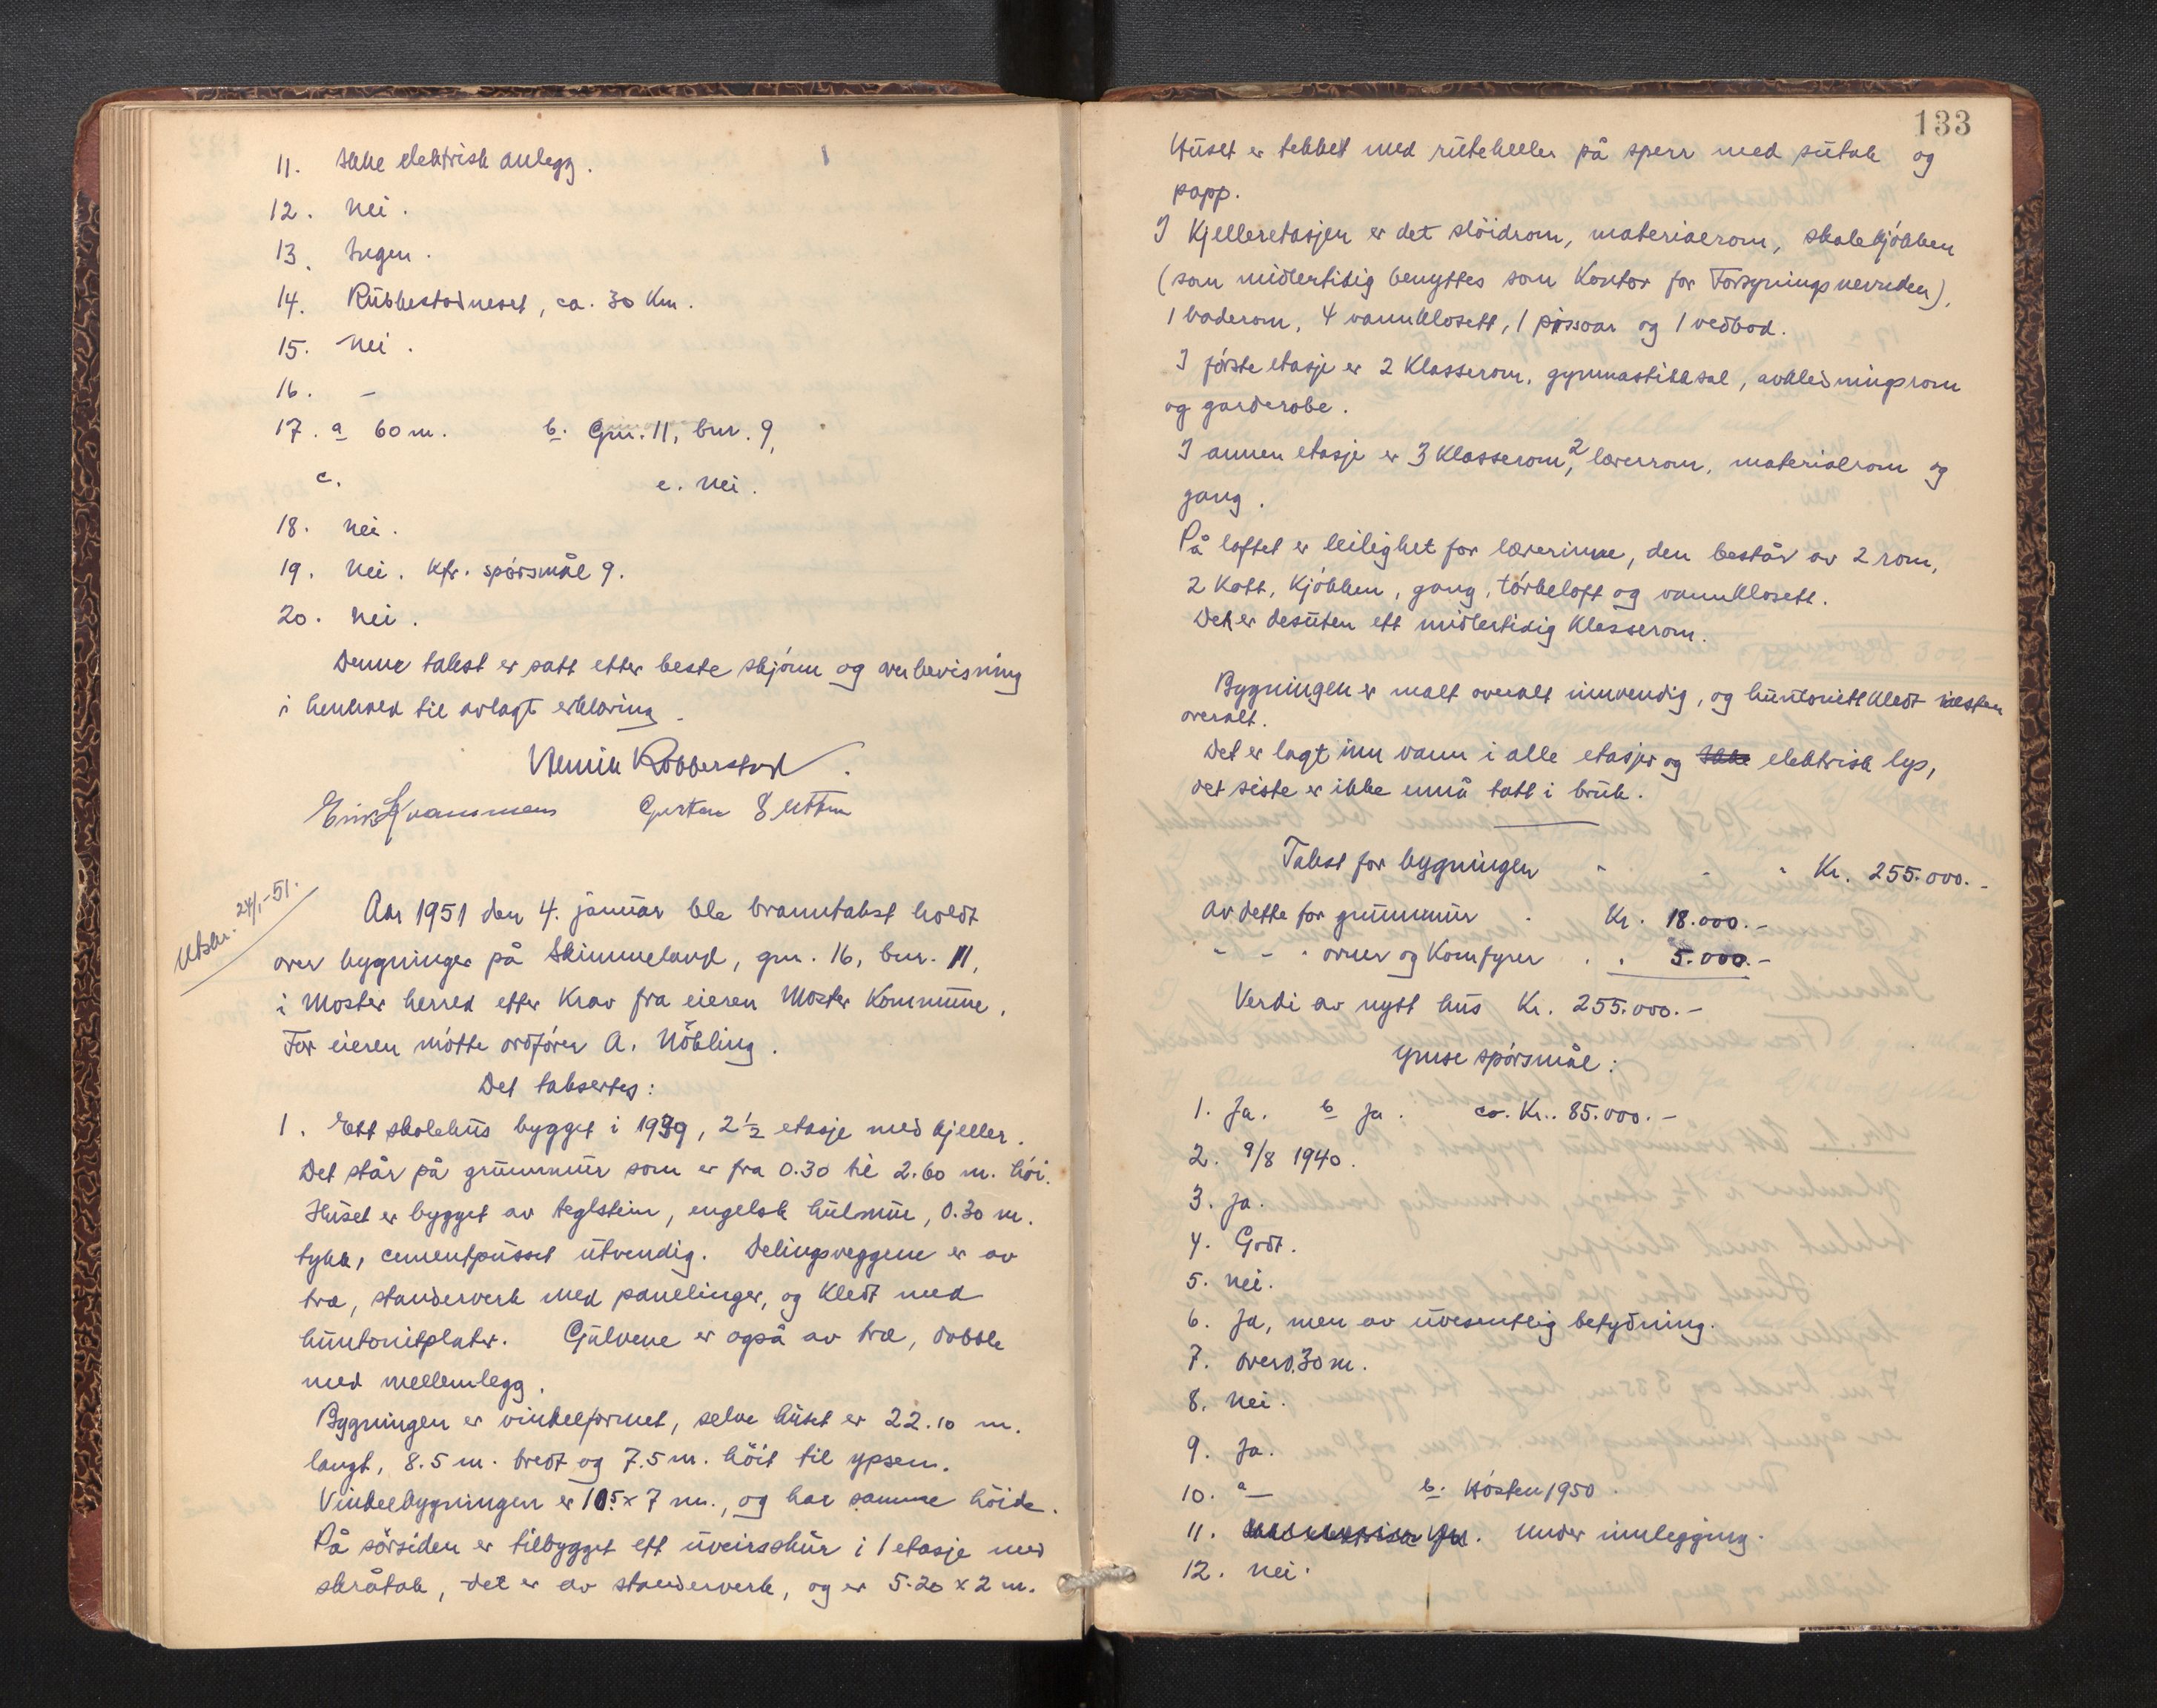 11. Ikke elektrisk anlegg.
12. Nei.
13. Ingen.
14. Rubbestadneset, ca. 30 Km.
15. Nei.
16. –
17. a 60 m. b. Gnr. 11, bnr. 9,
c. e. Nei.
18. Nei.
19. Nei. Kfr. spørsmål 9.
20. Nei.
Denne takst er satt etter beste skjønn og overbevisning
i henhold til avlagt erklæring.
Henrik Robberstad.
Erik Kvammen Gustav Sletten
Utskr. 24/1-51.
Aar 1951 den 4. januar ble branntakst holdt
over bygninger på Skimmeland, gnr. 16, bnr. 11,
i Moster herred etter krav fra eieren Moster Kommune.
For eieren møtte ordfører A. Nøkling.
Det takseres:
1. Ett skolehus bygget i 1939, 2 1/2 etasje med kjeller.
Det står på grunnmur som er fra 0.30 til 2.60 m. høi.
Huset er bygget av teglstein, engelsk hulmur, 0.30 m.
tykk, cementpusset utvendig. Delingsveggene er av
tre, standerverk med panelinger, og kledt med
huntonitplater. Gulvene er også av tre, doble
med mellemlegg.
Bygningen er vinkelformet, selve huset er 22.10 m.
langt, 8.5 m. bredt og 7.5 m. höit til ypsen.
Vinkelbygningen er 10.5 x 7 m., og har samme höide.
På sörsiden er tilbygget ett uveirsskur i 1 etasje med
skråtak, det er av standerverk, og er 5.20 x 2 m.
133
Huset er tekket med ruteheller på sperr med sutak og
papp.
I Kjelleretasjen er det slöidrom, materialrom, skolekjøkken
(som midlertidig benyttes som Kontor for Forsyningsnevnden),
1 baderom, 4 vannklosett, 1 pissoar og 1 vedbod.
I første etasje er 2 Klasserom, gymnastikksal, avkledningsrom
og garderobe.
I annen etasje er 3 Klasserom, 2 lærerrom, materialrom og
gang.
På loftet er leilighet for lærerinne, den består av 2 rom,
2 Kott, Kjøkken, gang, tørkeloft og vannklosett.
Det er desuten ett midlertidig Klasserom.
Bygningen er malt overalt innvendig, og huntonittkledt nesten
overalt.
Det er lagt inn vann i alle etasjer og Ikke elektrisk lys,
det siste er ikke ennå tatt i bruk.
Takst for bygningen - - - Kr. 255.000.-
av dette for grunnmur . Kr. 18.000.-
- - - ovner og Komfyrer . . 5.000.-
Verdi av nytt hus Kr. 255.000.-
Ymse spørsmål:
1. Ja. b Ja. ca. Kr. 85.000.-
2. 9/8 1940.
3. Ja.
4. Godt.
5. Nei.
6. Ja, men av uvesentlig betydning.
7. over 0.30 m.
8. Nei.
9. Ja.
10. a – b. Høsten 1950.
11. Under innlegging.
12. Nei.